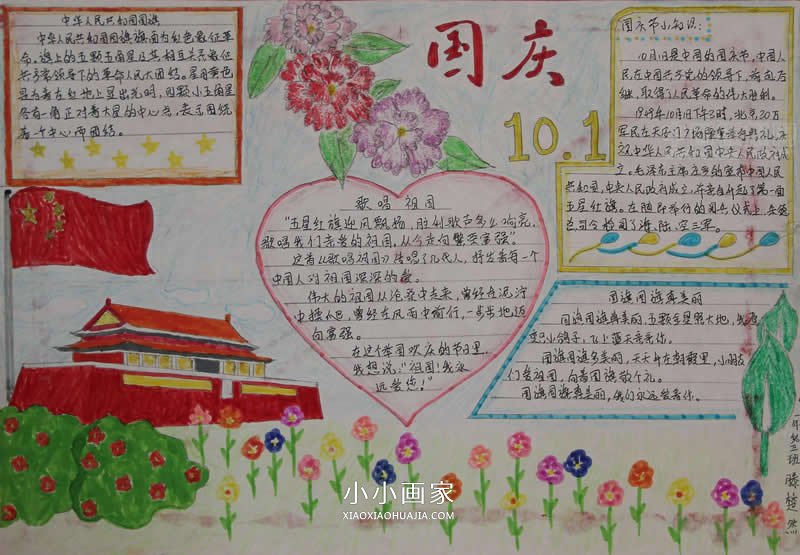 中华人民共和国国旗
中华人民共和国国旗旗面为红色象征革
命。旗上的五颗五角星及其相互关系象征
共产党领导下的革命人民大团结。星用黄色
是为着在红地上显出光明，四颗小五角星
各有一角正对着大星的中心点，表示围绕
着一个中心而团结。
国庆
10.1
国庆节小知识：
10月1日是中国的国庆节，中国人
民在中国共产党的领导下，前赴后
继，取得了人民革命的伟大胜利。
1949年10月1日下午3时，北京30万
军民在天安门广场隆重举行典礼，庆
祝中华人民共和国中央人民政府成
立。毛泽东主席庄严的宣布中国人民
共和国，中央人民政府成立，并亲自升起了第一面
五星红旗。在随即举行的阅兵仪式上，朱德
总司令检阅了海、陆、空三军。
歌唱祖国
“五星红旗迎风飘扬，胜利歌声多么响亮，
歌唱我们亲爱的祖国，从今走向繁荣富强”。
这首《歌唱祖国》传唱了几代人，抒发着每一个
中国人对祖国深深的爱。
伟大的祖国从沧桑中走来，曾经在泥泞
中挣扎，曾经在风雨中前行，一步步地迈
向富强。
在这个举国欢庆的节日里，
我想说：“祖国！我永
远爱您！”
国旗国旗真美丽
国旗国旗真美丽，五颗金星照大地，我愿
变只小鸽子，飞上蓝天亲亲你。
国旗国旗多美丽，天天升在朝霞里，小朋友
们爱祖国，向着国旗敬个礼。
国旗国旗真美丽，我们永远爱着你。
小小画家
XIAOXIAOHUAJIA.COM